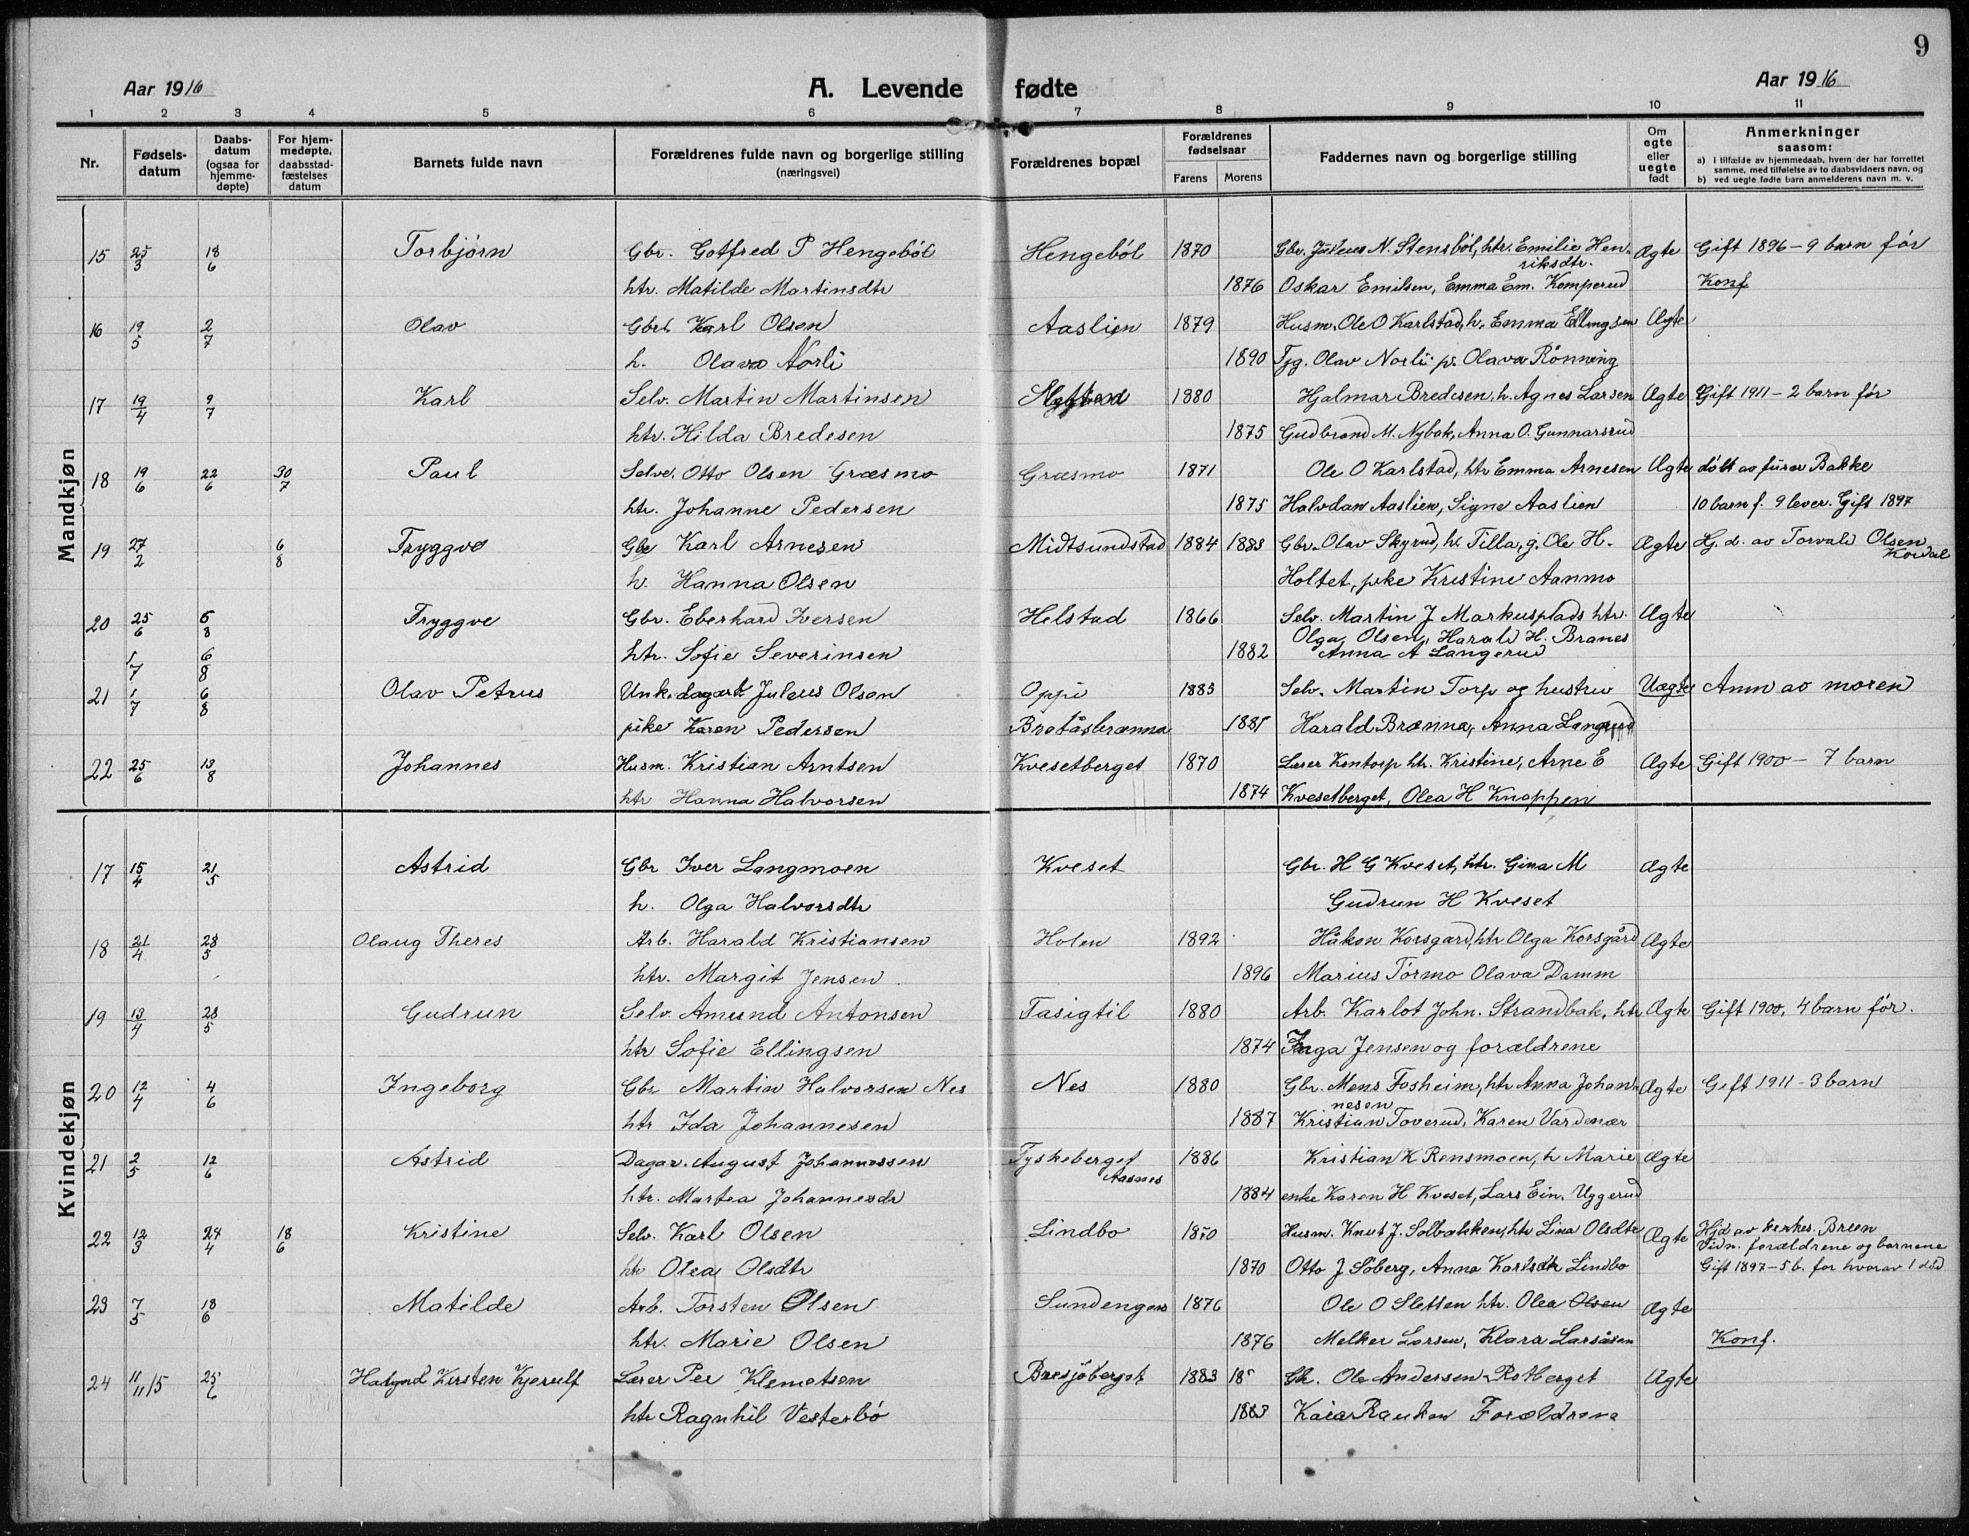 9
Aar 1916 A. Levende fødte Aar 1916
1 2 3 4 5 6 7 8 9 10 11
Nr. Fødsels-datum Daabs-datum (ogsaa for hjemme-døpte) For hjem-medøpte, daabsstad-fæstelses datum Barnets fulde navn Forældrenes fulde navn og borgerlige stilling (næringsvei) Forældrenes bopæl Forældrenes fødselsaar Farens Morens Faddernes navn og borgerlige stilling Om egte eller uegte født Anmerkninger saasom:
a) I tilfælde av hjemmedaab, hvem der har forrettet samme, med tilføielse av to daabsvidners navn, og
b) ved uegte fødte barn anmelderens navn m. v.
Mandkjøn
15 25/3 18/6 Torbjørn Gbr. Gotfred P Hengebøl Hengebøl 1870 Gbr. Julius N. Stensbøl, htr. Emilie Hen-riksdtr. Ægte Gift 1896 - 9 barn før
htr. Matilde Martinsdtr 1876 Oskar Emilsen, Emma Em. Komperud Konf
16 19/5 2/7 Olav Gbr. Karl Olsen Aaslien 1879 Husm. Ole O Karlstad, h. Emma Ellingsen Ægte
h. Olava Norli 1890 Tjg. Olav Norli p. Olava Rønning
17 19/4 9/7 Karl Selv. Martin Martinsen 1880 Hjalmar Bredesen, h. Agnes Larsen Ægte Gift 1911 - 2 barn før
htr. Hilda Bredesen 1875 Gudbrand M. Nybak, Anna O. Gunnarsrud
18 19/6 22/6 30/7 Paul Selve. Otto Olsen Græsmo Græsmo 1871 Ole O Karlstad, htr Emma Arnesen Ægte døbt av Bakke
htr. Johanne Pedersen 1875 Halvdan Aaslien, Signe Aaslien 10 barn f. 9 lever. Gift 1897
19 27/2 6/8 Tryggve Gbr Karl Arnesen Midtsundstad 1884 1883 Gbr. Olav Skyrud, h. Tilla, g. Ole H. Ægte Hj. d. av Torvald Olsen
h. Hanna Olsen Holtet, pike Kristine Aanmo
20 25/6 6/8 Tryggve Gbr. Eberhard Iversen Helstad 1866 Selv. Martin J Markusplads htr. Ægte
1/7 6/8 htr. Sofie Severinsen 1882 Olga Olsen, Harald H. Branes Anna A Langerud
21 1/7 6/8 Olav Petrus Unk. dagarb Julius Olsen Oppi 1883 Selv. Martin Torp og hustru Uægte Anm av moren
pike Karen Pedersen Bratåsbrænna 1881 Harald Brænna, Anna Langerud
22 25/6 13/8 Johannes Husm. Kristian Arntsen Kvesetberget 1870 Kontorp htr. Kristine, Arne E Ægte Gift 1900 - 7 barn
htr Hanna Halvorsen 1874 Kvesetberget, Olea H Knappen
Kvindekjøn
17 15/4 21/5 Astrid Gbr Iver Langmoen Kveset Gbr. H G Kveset, htr. Gina M Ægte
h. Olga Halvorsdtr Gudrun H Kveset
18 21/4 28/5 Olaug Theres Arb. Harald Kristiansen Holen 1892 Håkon Korsgard, htr Olga Korsgård Ægte
htr. Margit Jensen 1896 Marius Tórmo Olava Damm
19 13/4 28/5 Gudrun Selv. Amund Antonsen Tasigtil 1880 Arb. Karlot John. Strandbak, htr Ægte Gift 1900, 4 barn før.
htr Sofie Ellingsen 1874 Inga Jensen og forældrene
20 12/4 4/6 Ingeborg Gbr Martin Halvorsen Nes Nes 1880 Gbr. Mons Fosheim, htr Anna Johan-nesen Ægte Gift 1911 - 3 barn
htr Ida Johannesen 1887 Kristian Toverud, Karen Vardenær
21 2/5 12/6 Astrid Dagar. August Johannessen Tyskeberget Aasnes 1886 Kristian K Rensmoen, h Marie Ægte
htr. Martea Johannesdr 1884 enke Karen H Kveset, Lars Ein. Uggerud
22 12/3 24/4 18/6 Kristine Selv. Karl Olsen Lindbo 1870 Husm. Knut J. Solbakken, htr Lina Olsdtr Ægte Hjd av kirkes. Breen
Vidn. forældrene og barnene
htr Olea Olsdtr 1870 Otto J Soberg, Anna Karlsdtr Lindbo Gift 1897 - 5 b. før hvorav 1 død
23 7/5 18/6 Matilde Arb. Torsten Olsen Sundengen 1876 Ole O Sletten htr. Olea Olsen Ægte
htr. Marie Olsen 1876 Melker Larsen, Klara Larsåsen Konf.
24 11/11 15 25/6 Kirsten Kjerulf Lærer Per Klemetsen Bresjøberget 1883 18 Gk. Ole Andersen Rotberget Ægte
htr Ragnhil Vesterbø 1883 Kaia Forældrene